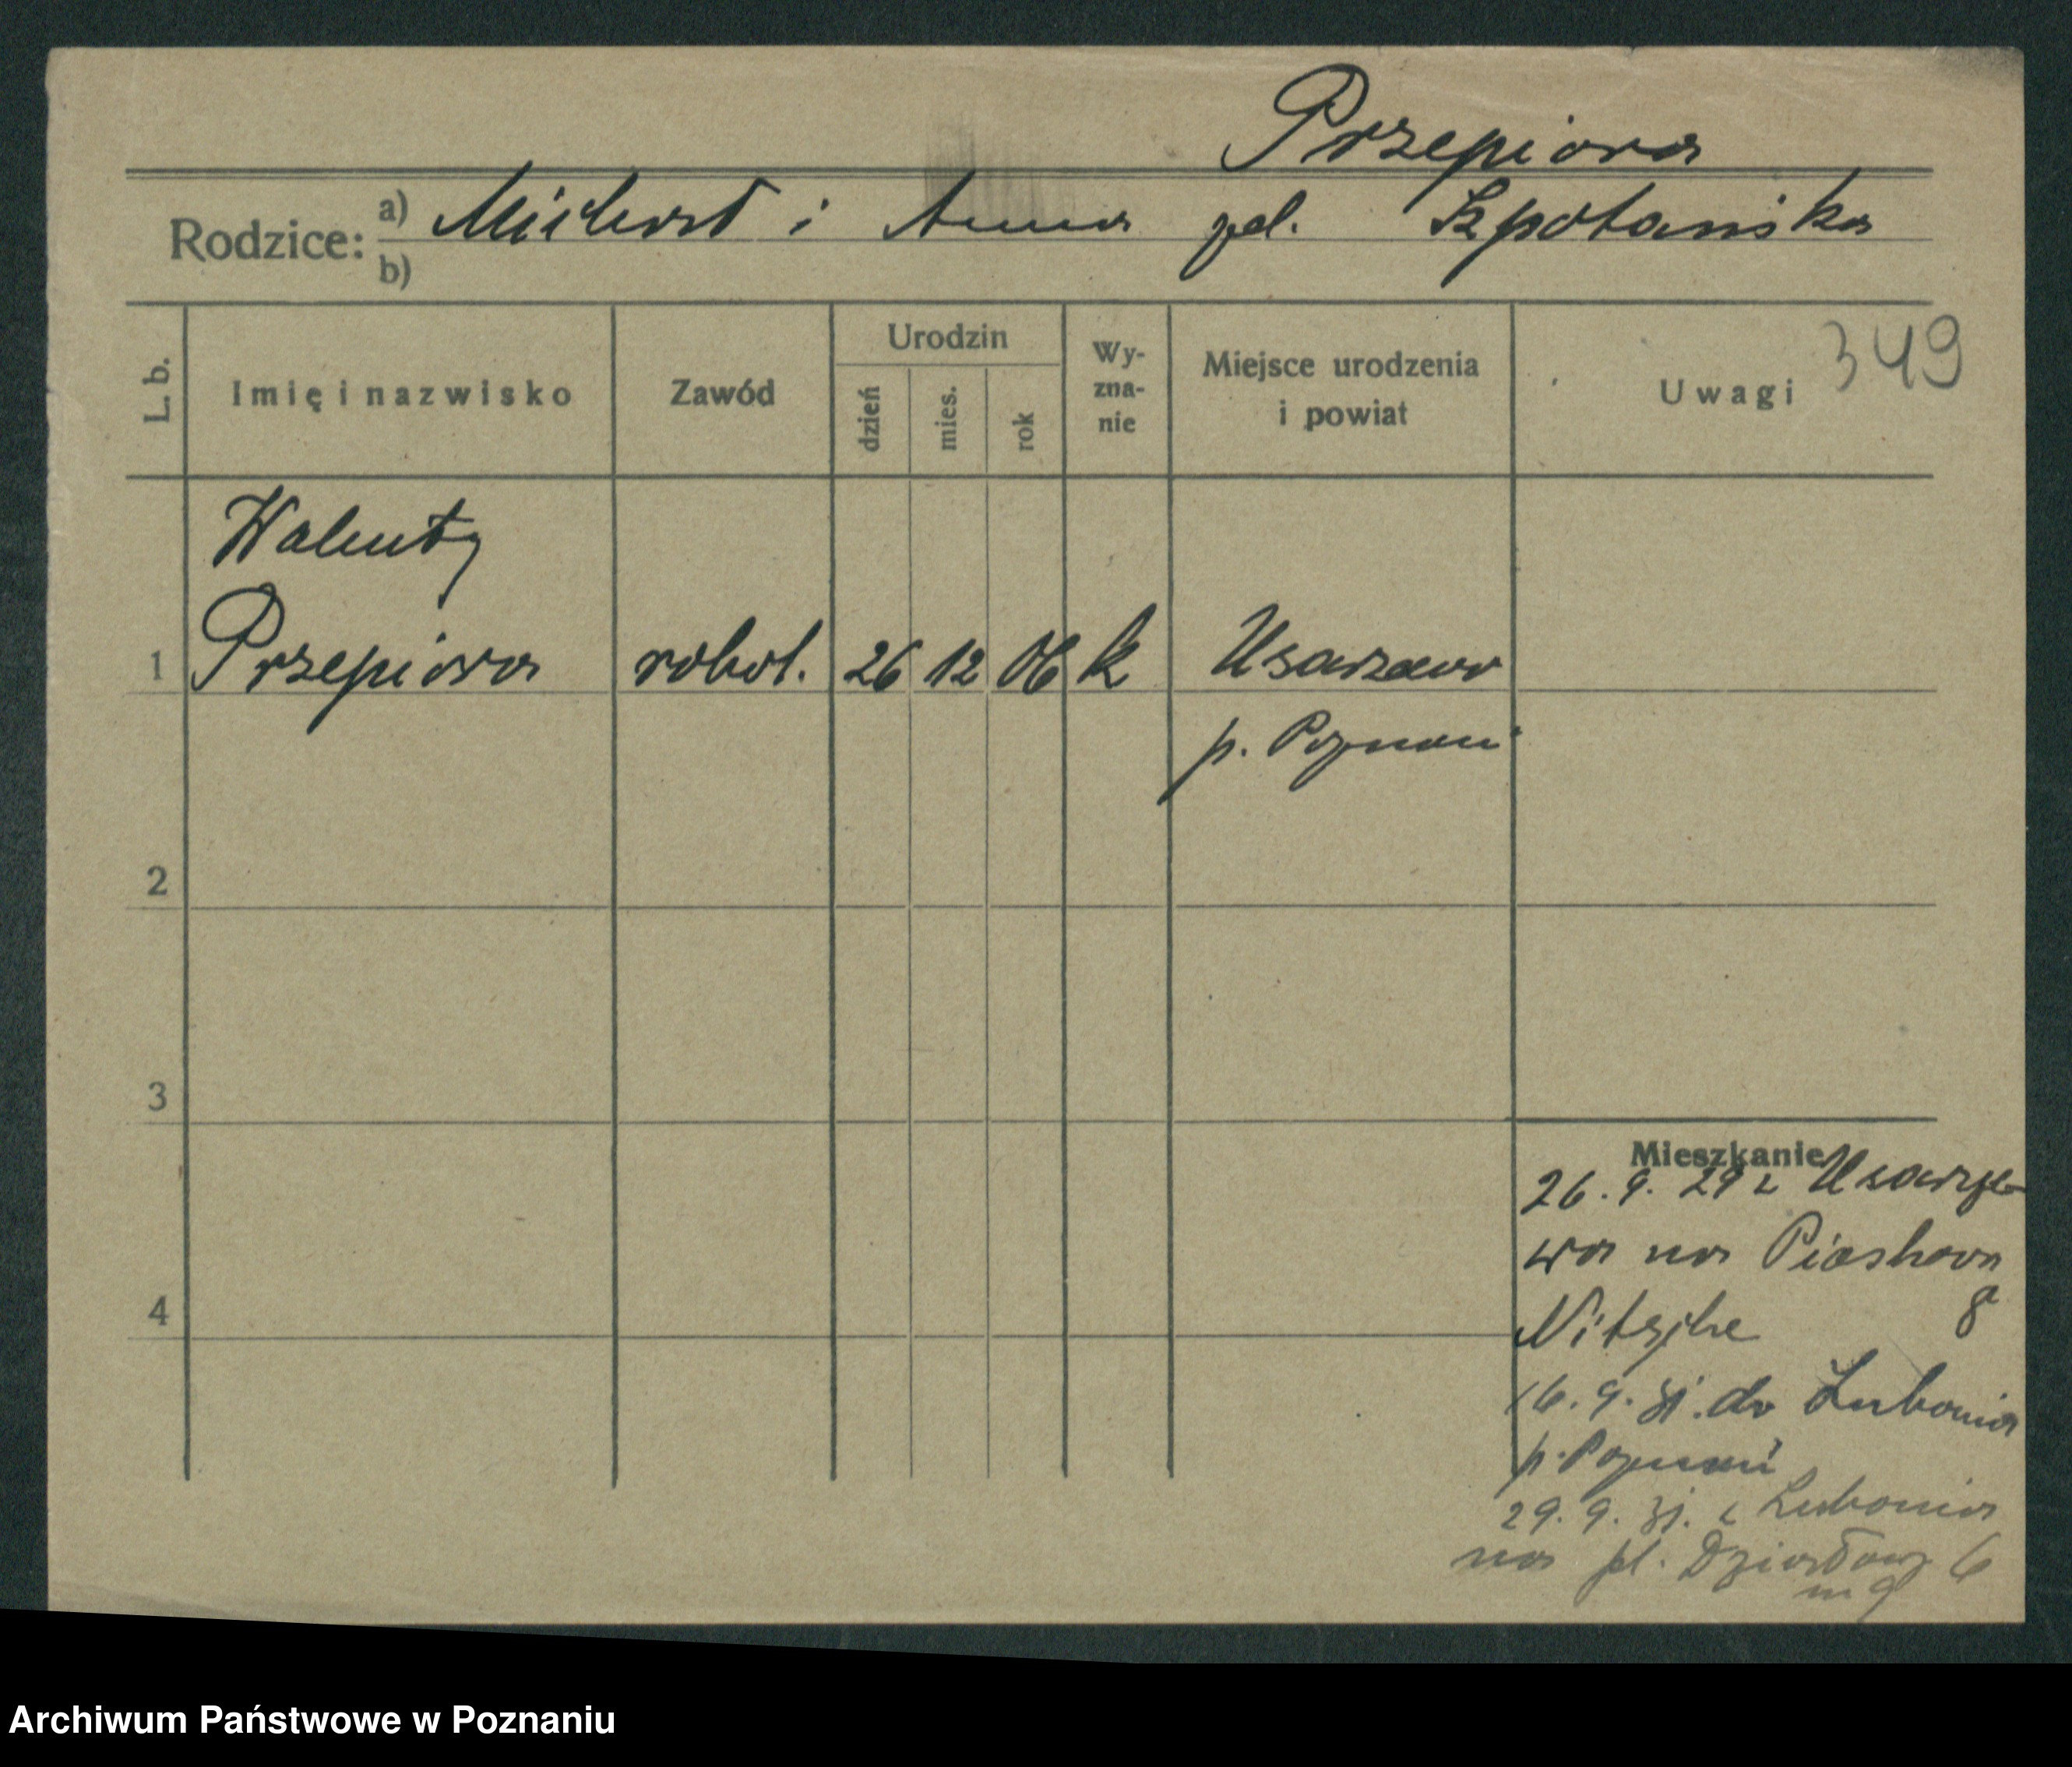 Przepiora
Rodzice: a) Michał i Anna zd. Szpotańska
b)
349
L. b. Imię i nazwisko Zawód Urodzin dzień mies. rok Wy-zna-nie Miejsce urodzenia i powiat Uwagi
Walenty
1 Przepiora robot. 26 12 06 k Usarzewo
p. Poznań
2
3
Mieszkanie
26. 9. 29 z Usarze-
wa na Piaskowa
4 Nitzche 8
16. 9. 31. do Lubonia
p. Poznań
29. 9. 31. z Lubonia
na pl. Działowy 6
m 9
Archiwum Państwowe w Poznaniu